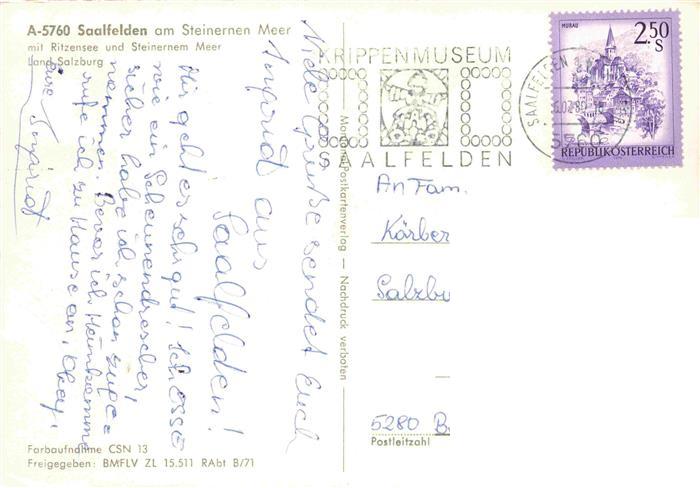 A-5760 Saalfelden am Steinernen Meer
mit Ritzensee und Steinernem Meer
Land Salzburg
Viele Grüße sendet Euch
Ingrid aus
Saalfelden!
Mir geht es sehr gut! Ich esse
wie ein Scheunendrescher,
sicher habe ich schon zuge=
nommen. Bevor ich Heimkomme
rufe ich zu Hause an, Okay.
Eure Ingrid
Farbaufnahme CSN 13
Freigegeben: BMFLV ZL 15.511 RAbt B/71
Postkartenverlag — Nachdruck verboten —
KRIPPENMUSEUM
SAALFELDEN
SAALFELDEN
5760
MURAU
2.50
S
REPUBLIK ÖSTERREICH
An Fam.
Körber
Salzbu
5280 B
Postleitzahl